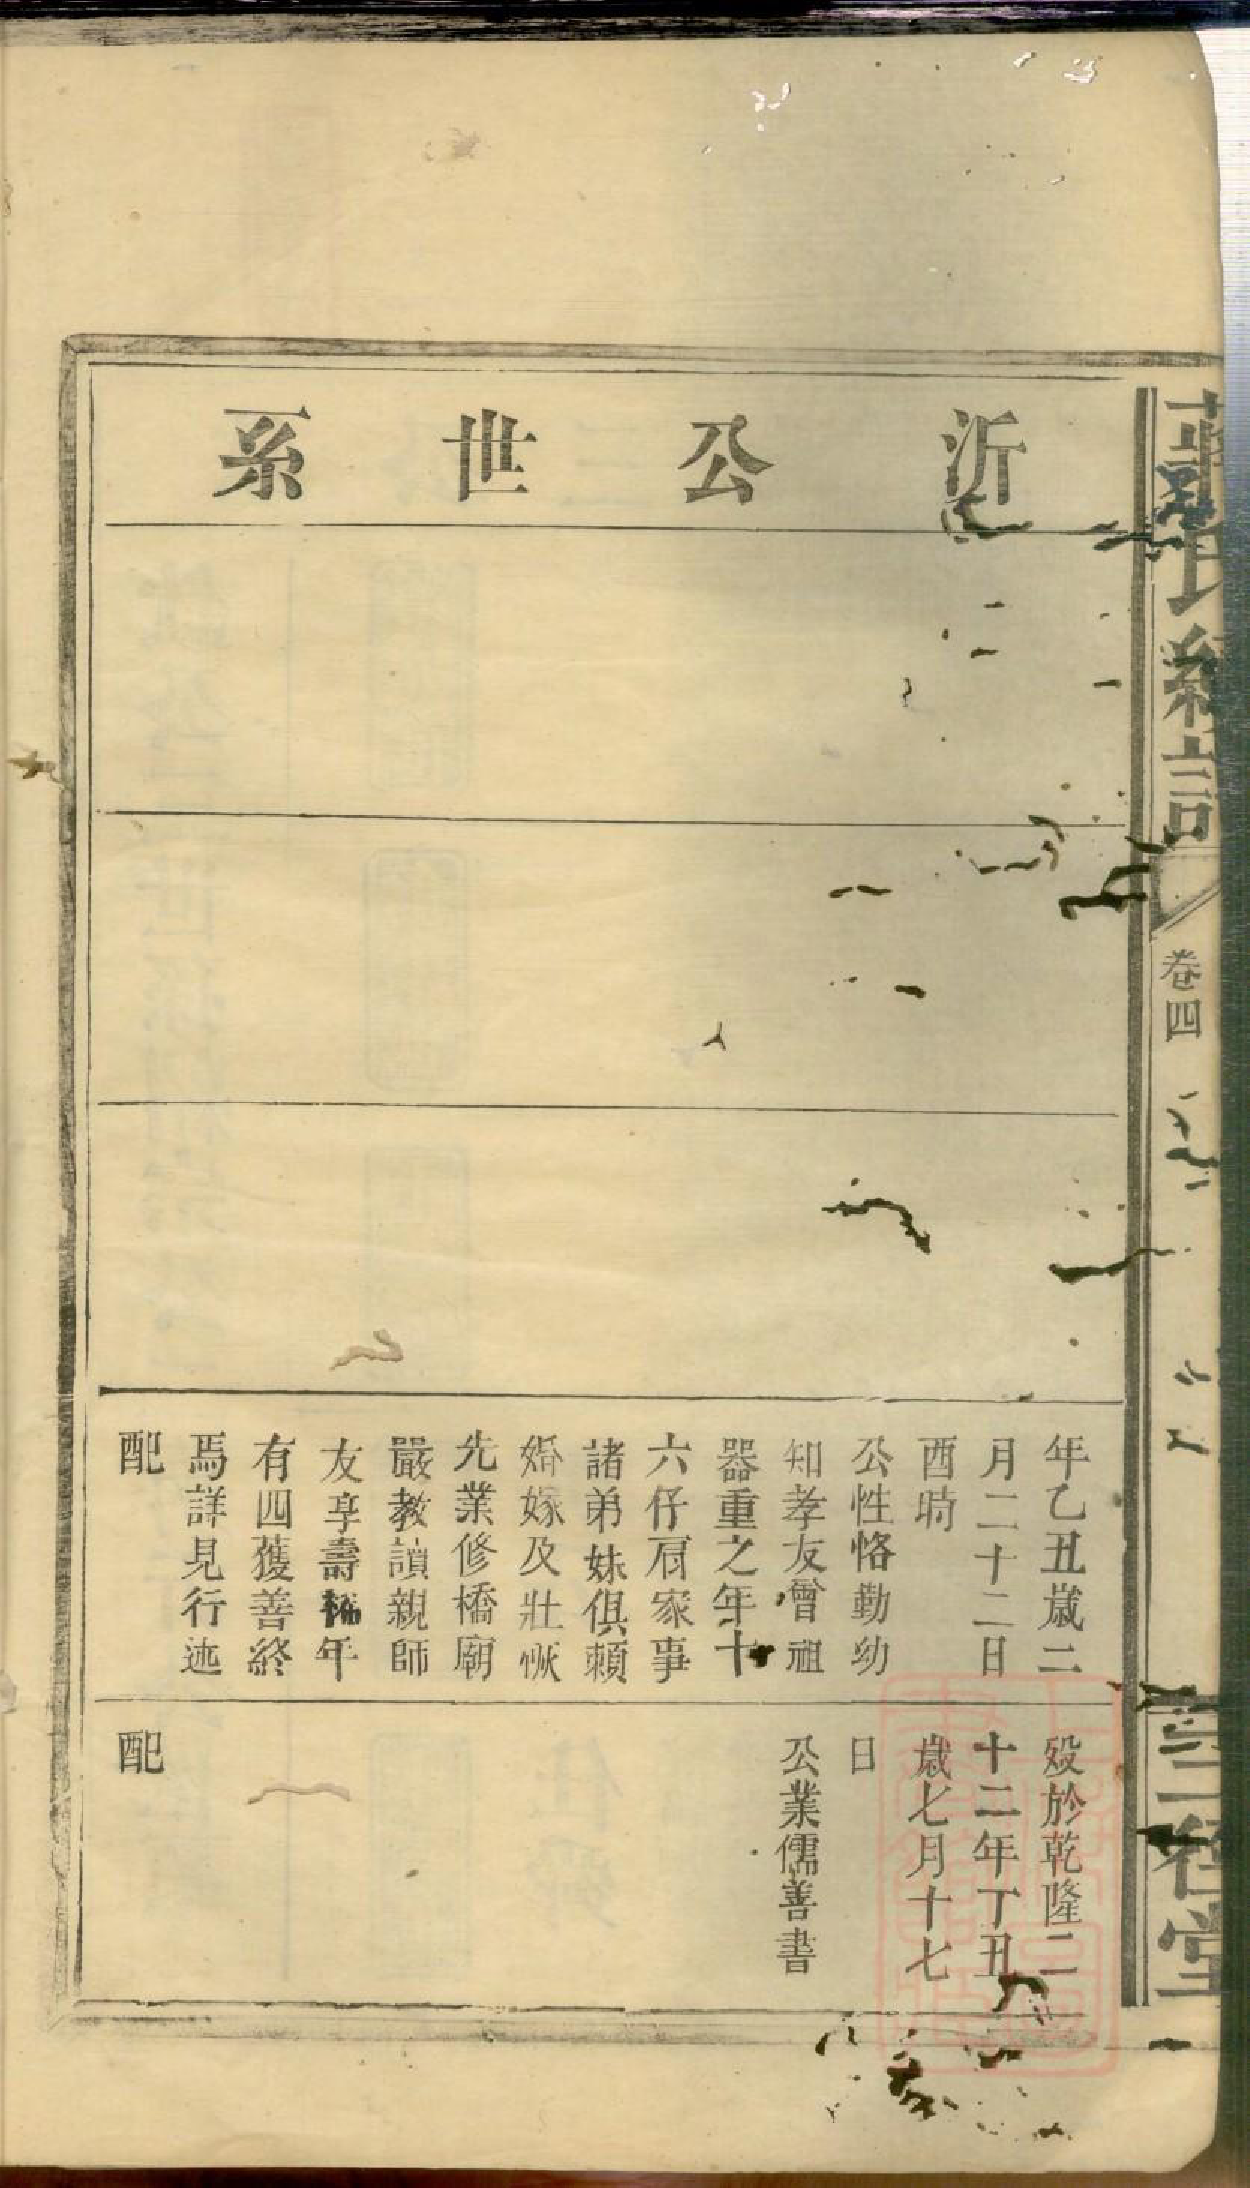 沂公世系
年乙丑歲二
月二十二日
酉時
公性恪勤幼
知孝友曾祖
器重之年十
六仔肩家事
諸弟妹俱賴
婚嫁及壯恢
先業修橋廟
嚴教讀親師
友享壽稀年
有四獲善終
焉詳見行迹
配
歿於乾隆二
十二年丁丑
歲七月十七
日
公業儒善書
配
蔣氏續譜
卷四
三徑堂